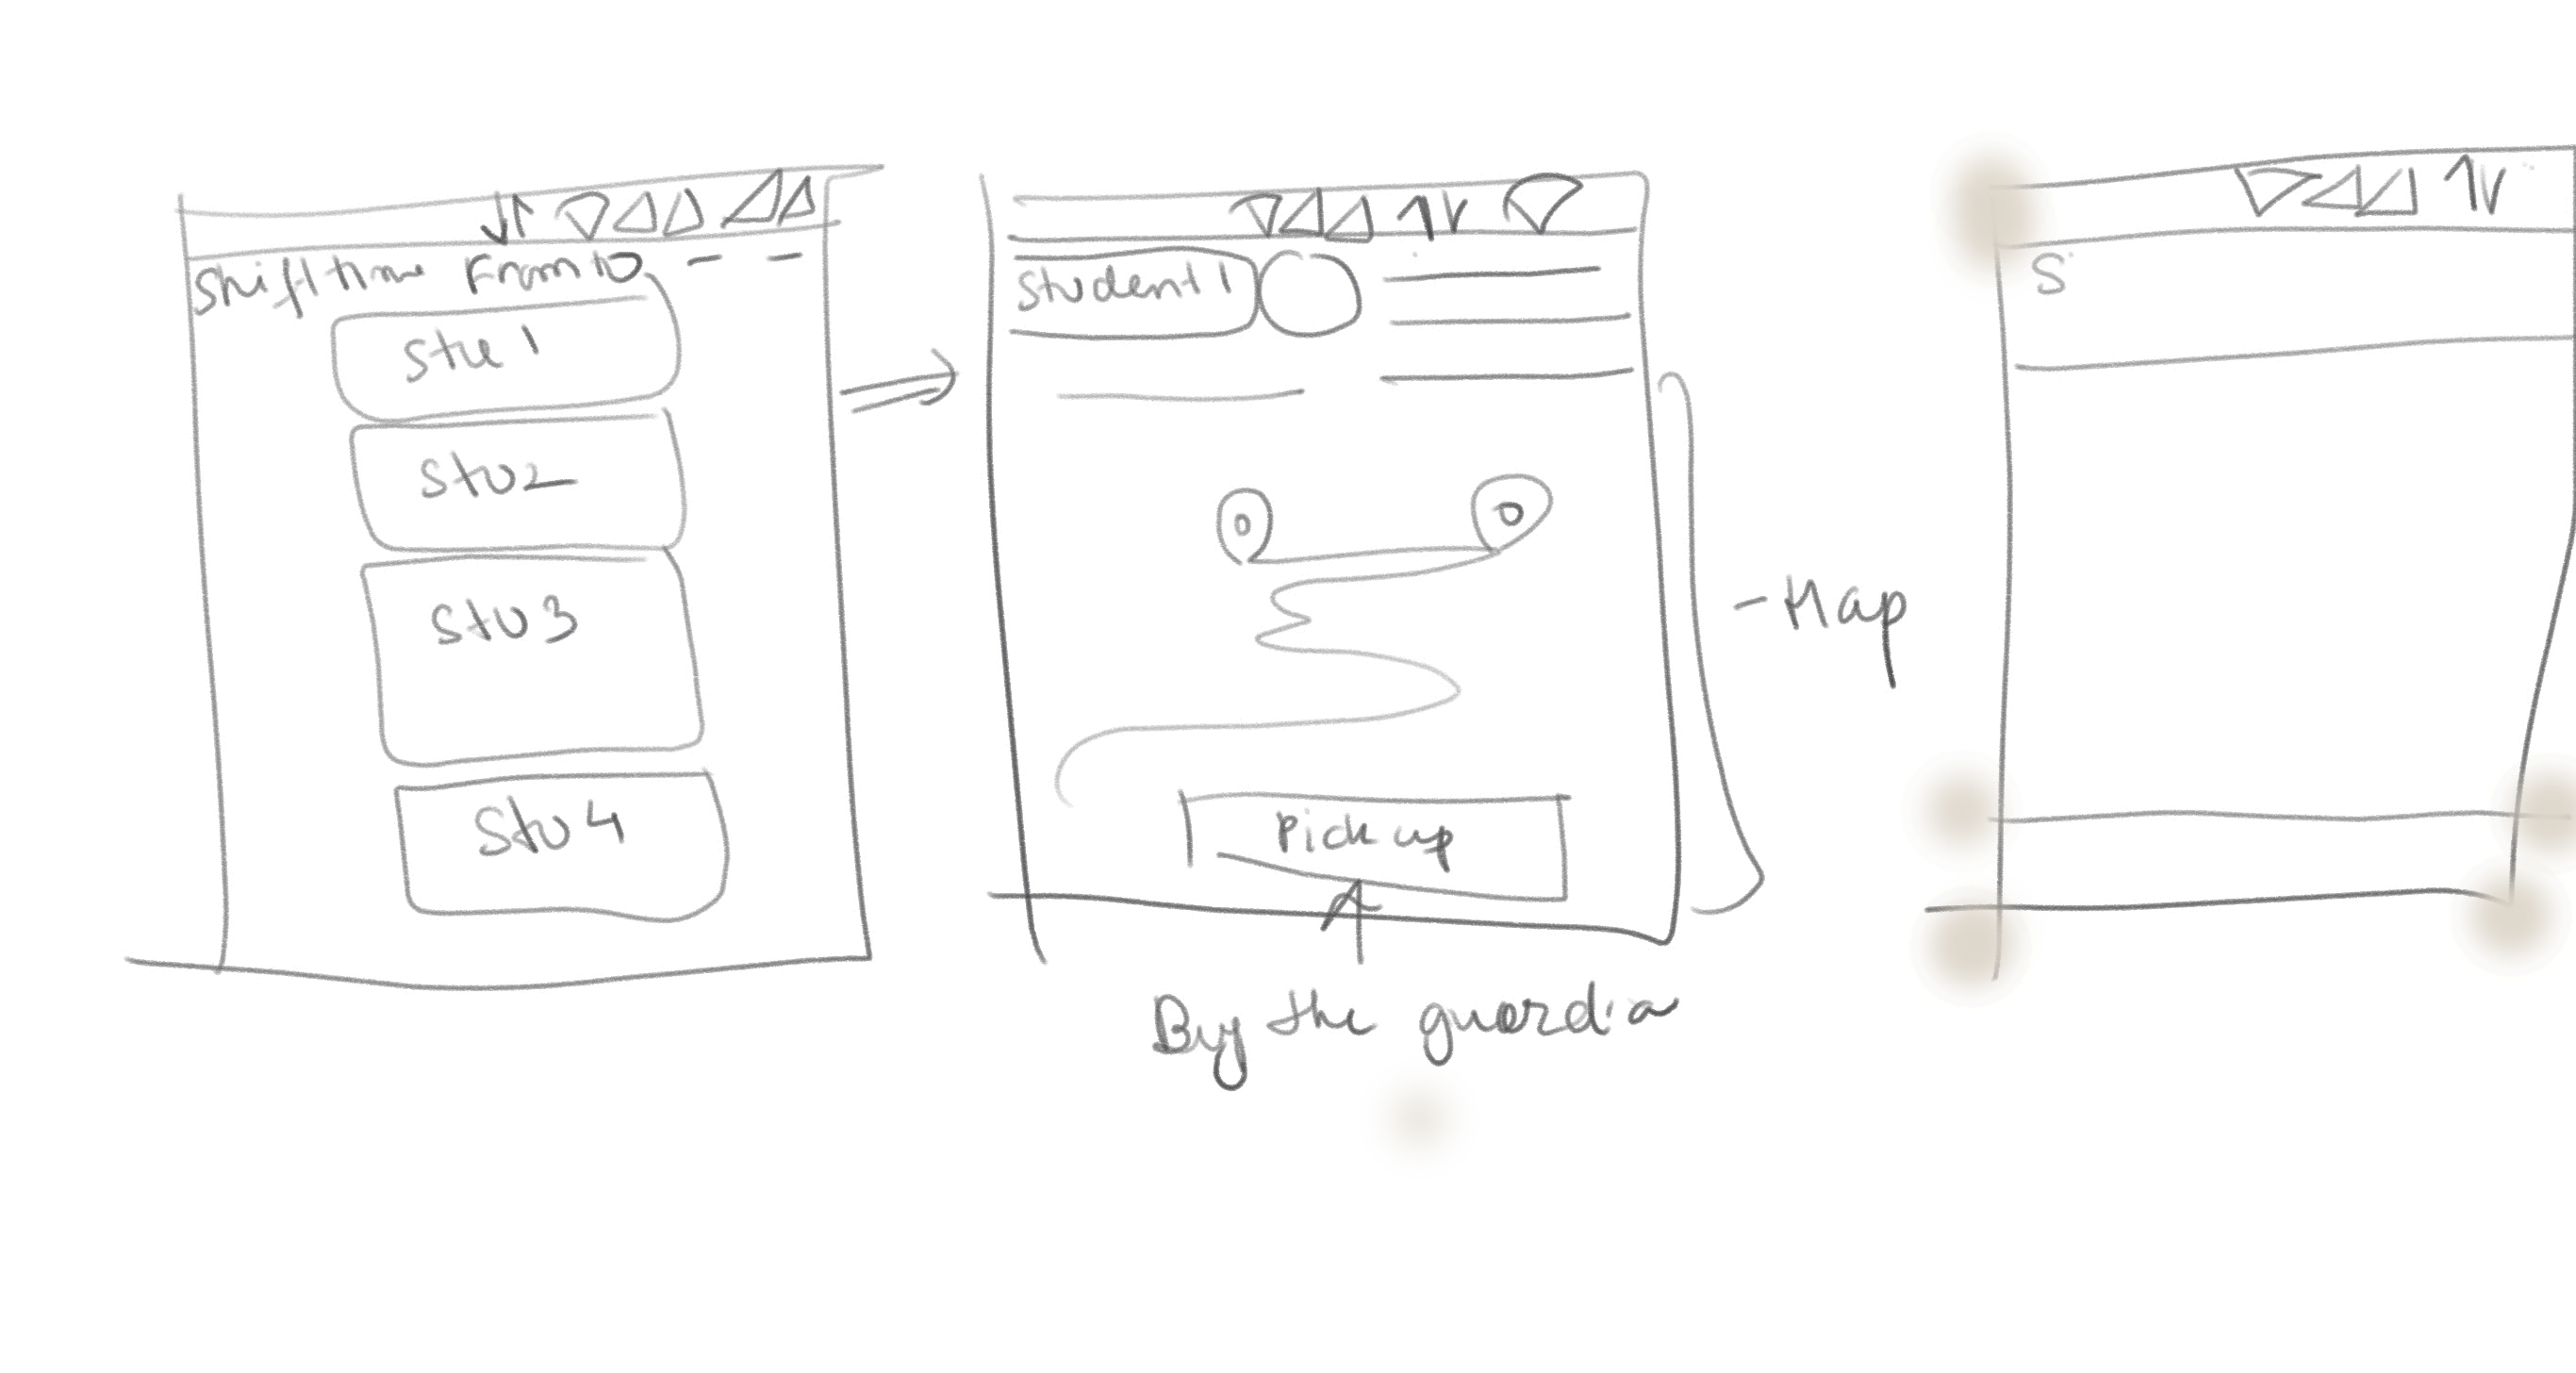 Shift time From to - -
Stu 1
Stu2
Stu3
Stu4
Student 1
Pick up
By the guardia
- Map
S